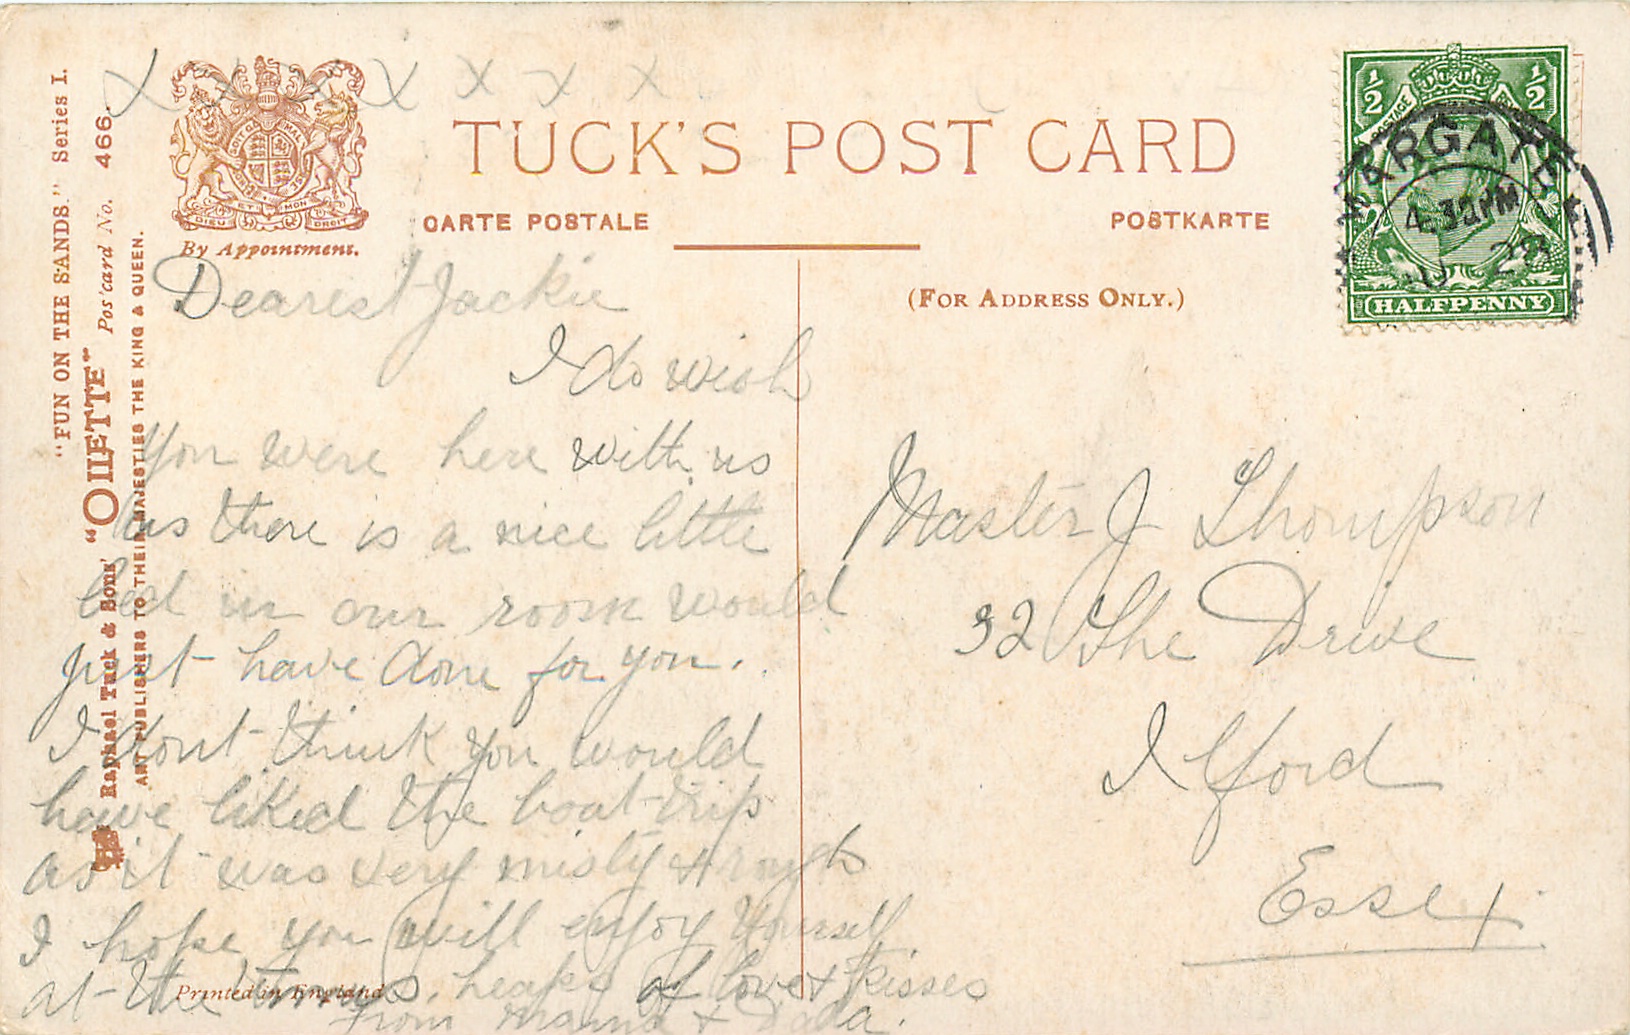 x x x x x x x x
TUCK'S POST CARD
CARTE POSTALE
POSTKARTE
By Appointment.
DIEU ET MON DROIT
(FOR ADDRESS ONLY.)
"FUN ON THE SANDS." Series I.
Raphael Tuck & Sons' "OILETTE" Postcard No. 466.
ART PUBLISHERS TO THEIR MAJESTIES THE KING & QUEEN.
Printed in England
Dearest Jackie
I do wish
you were here with us
as there is a nice little
bed in our room would
just have done for you.
I dont think you would
have liked the boat trip
as it was very misty & rough
I hope you will enjoy yourself
at the heaps of love & kisses
from Mama & Dada.
Master J Thompson
32 The Drive
Ilford
Essex
1/2 1/2
POSTAGE
HALFPENNY
MARGATE
4.30PM
28